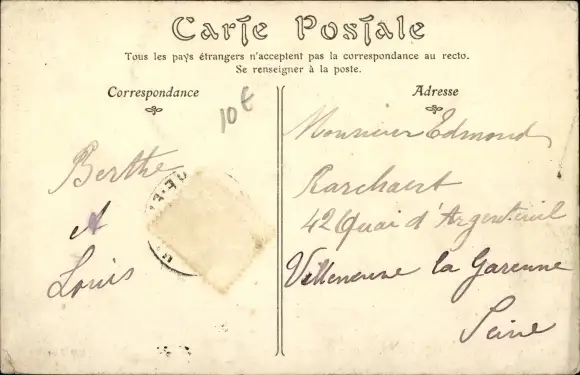 Carte Postale
Tous les pays étrangers n'acceptent pas la correspondance au recto.
Se renseigner à la poste.
Correspondance
Adresse
10€
Berthe
et
Louis
Monsieur Edmond
42 Quai d'Argenteuil
Villeneuve la Garenne
Seine